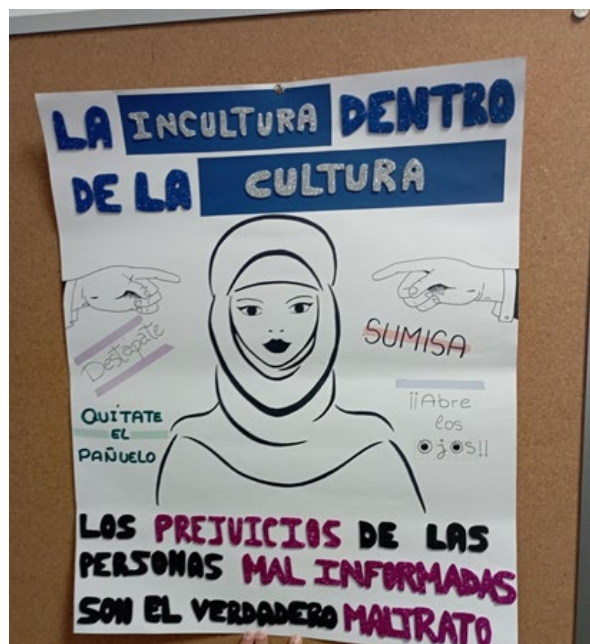 LA INCULTURA DENTRO
DE LA CULTURA
Destápate
SUMISA
QUÍTATE
EL
PAÑUELO
¡¡Abre
los
ojos!!
LOS PREJUICIOS DE LAS
PERSONAS MAL INFORMADAS
SON EL VERDADERO MALTRATO